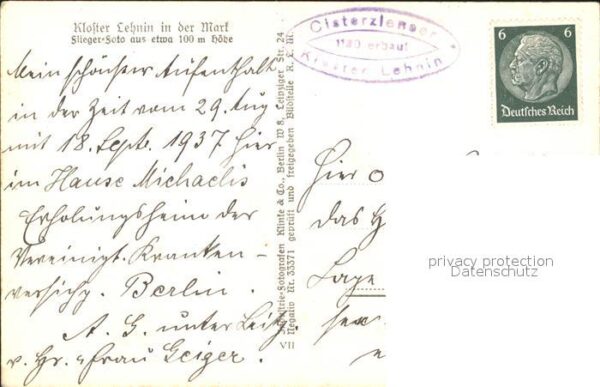 Kloster Lehnin in der Mark
Flieger-Foto aus etwa 100 m Höhe
Mein schönster Aufenthalt
in der Zeit vom 29. Aug
mit 18. Sept. 1937 hier
im Hause Michaelis
Erholungsheim der
Vereinigt. Kranken-
versichg. Berlin.
A. G. unter Leitg.
v. Hr. u Frau Geiger.
Industrie-Fotografen Klinke & Co., Berlin W 8, Leipziger Str. 24
Negativ Nr. 33371 geprüft und freigegeben Bildstelle R. L. M.
VII
Cisterzienser
1180 erbaut
Kloster Lehnin
6 6
Deutsches Reich
Hier
das
Lage
privacy protection
Datenschutz